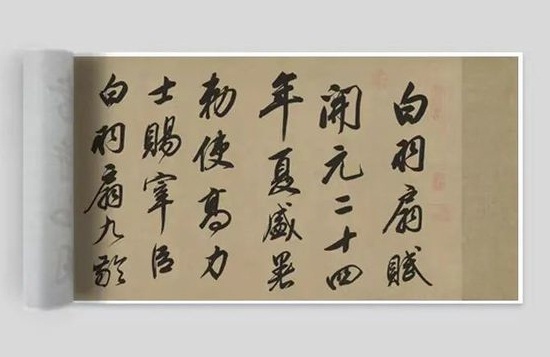 白羽扇賦
開元二十四
年夏盛暑
勅使高力
士賜宰臣
白羽扇九齡